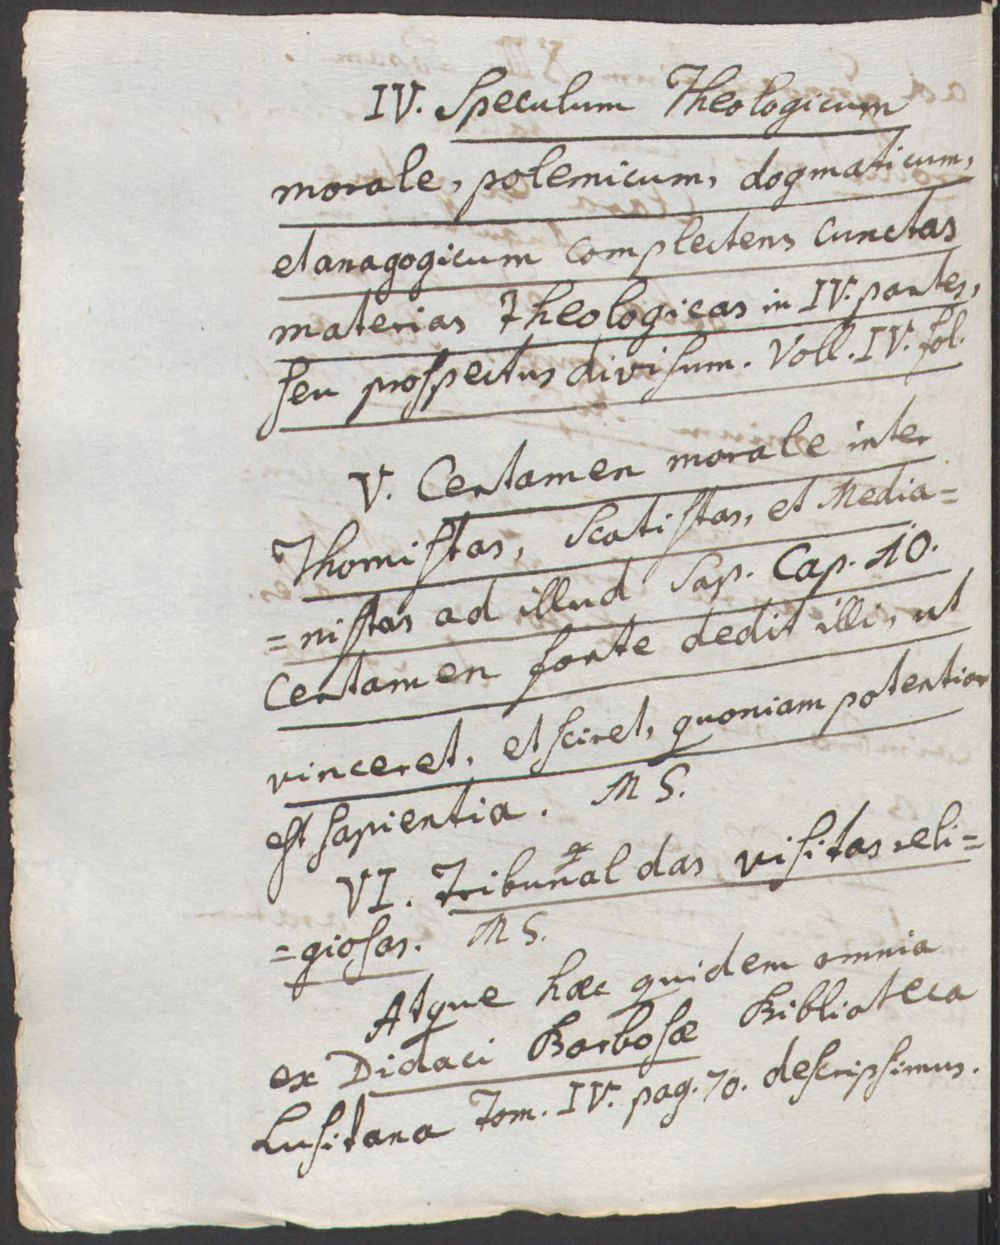 IV. Speculum Theologicum
morale, polemicum, dogmaticum,
et anagogicum complectens cunctas
materias Theologicas in IV. partes,
seu prospectus divisum. Voll. IV. fol.
V. Certamen morale inter
Thomistas, Scotistas, et Media=
=nistas ad illud Sap. Cap. 10.
Certamen forte dedit illi, ut
vinceret, et sciret, quoniam potentior
est sapientia. MS.
VI. Tribunal das visitas reli=
=giosas. MS.
Atque hæc quidem omnia
ex Didaci Barbosæ Biblioteca
Lusitana Tom. IV. pag. 70. descripsimus.